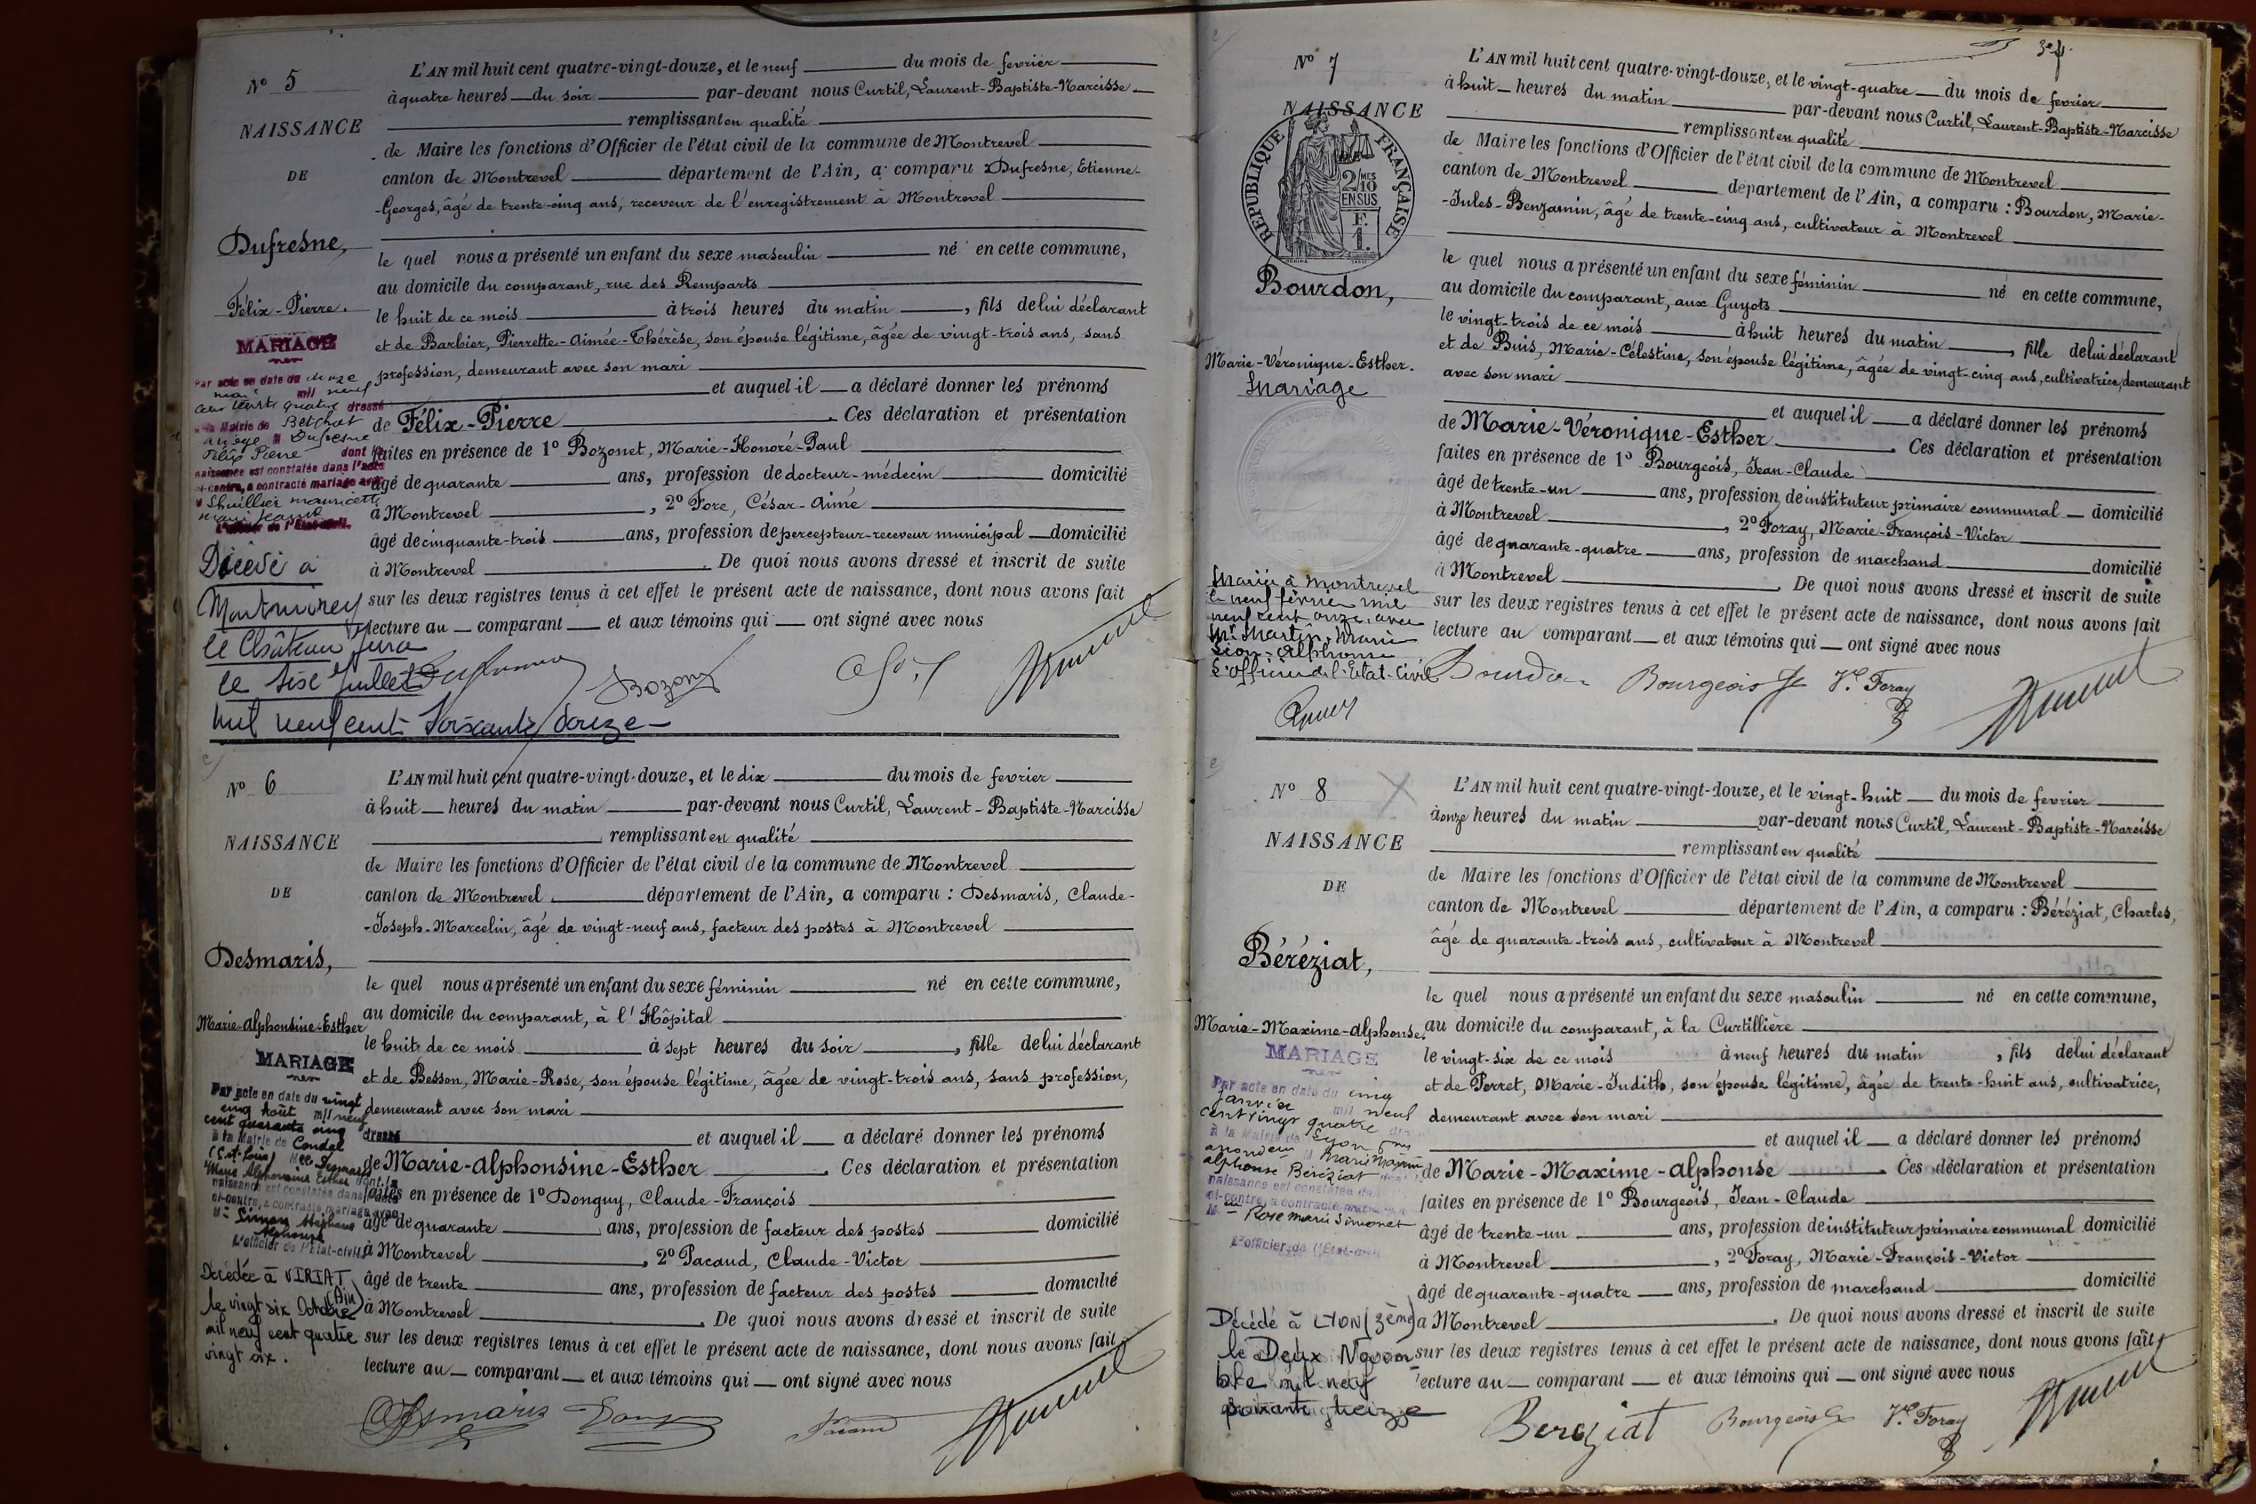 N° 5
NAISSANCE
DE
Dufresne,
Félix-Pierre.
MARIAGE
Par acte en date du onze
mai mil neuf
cent trente quatre dressé
à la Mairie de Betchat
Ariège M Dufresne
Félix Pierre dont la
naissance est constatée dans l'acte
ci-contre, a contracté mariage avec
Lhuillier Mauricette
Jeanne
L'officier de l'Etat-civil.
Décédé à
Montmirey
le Château Jura
le six Juillet
mil neuf cent soixante douze
L'AN mil huit cent quatre-vingt-douze, et le neuf du mois de fevrier
à quatre heures du soir par-devant nous Curtil, Laurent-Baptiste-Narcisse
remplissant en qualité
de Maire les fonctions d'Officier de l'état civil de la commune de Montrevel
canton de Montrevel département de l'Ain, a comparu Dufresne, Etienne-
-Georges, âgé de trente-cinq ans, receveur de l'enregistrement à Montrevel
le quel nous a présenté un enfant du sexe masculin né en cette commune,
au domicile du comparant, rue des Remparts
le huit de ce mois à trois heures du matin, fils de lui déclarant
et de Barbier, Pierrette-Aimée-Thérèse, son épouse légitime, âgée de vingt-trois ans, sans
profession, demeurant avec son mari
et auquel il a déclaré donner les prénoms
de Félix-Pierre. Ces déclaration et présentation
faites en présence de 1° Bozonet, Marie-Honoré-Paul
âgé de quarante ans, profession de docteur-médecin domicilié
à Montrevel, 2° Fore, César-Aimé
âgé de cinquante-trois ans, profession de percepteur-receveur municipal domicilié
à Montrevel. De quoi nous avons dressé et inscrit de suite
sur les deux registres tenus à cet effet le présent acte de naissance, dont nous avons fait
lecture au comparant et aux témoins qui ont signé avec nous
Dufresne Bozonet
N° 6
NAISSANCE
DE
Desmaris,
Marie-Alphonsine-Esther
MARIAGE
Par acte en date du vingt
cinq Août mil neuf
cent quarante cinq dressé
à la Mairie de Condal
(S-et-Loire) Mlle Desmaris
Marie Alphonsine Esther dont la
naissance est constatée dans l'acte
ci-contre, a contracté mariage avec
Mr Simon Stéphane
Alphonse
L'officier de l'Etat-civil
Décédée à VIRIAT
(Ain)
le vingt six Octobre
mil neuf cent quatre
vingt six.
L'AN mil huit cent quatre-vingt-douze, et le dix du mois de fevrier
à huit heures du matin par-devant nous Curtil, Laurent-Baptiste-Narcisse
remplissant en qualité
de Maire les fonctions d'Officier de l'état civil de la commune de Montrevel
canton de Montrevel département de l'Ain, a comparu : Desmaris, Claude-
-Joseph-Marcelin, âgé de vingt-neuf ans, facteur des postes à Montrevel
le quel nous a présenté un enfant du sexe féminin né en cette commune,
au domicile du comparant, à l'Hôpital
le huit de ce mois à sept heures du soir, fille de lui déclarant
et de Besson, Marie-Rose, son épouse légitime, âgée de vingt-trois ans, sans profession,
demeurant avec son mari
et auquel il a déclaré donner les prénoms
de Marie-Alphonsine-Esther. Ces déclaration et présentation
faites en présence de 1° Donguy, Claude-François
âgé de quarante ans, profession de facteur des postes domicilié
à Montrevel, 2° Pacaud, Claude-Victor
âgé de trente ans, profession de facteur des postes domicilié
à Montrevel. De quoi nous avons dressé et inscrit de suite
sur les deux registres tenus à cet effet le présent acte de naissance, dont nous avons fait
lecture au comparant et aux témoins qui ont signé avec nous
Desmaris Donguy Pacaud
N° 7
NAISSANCE
REPUBLIQUE FRANÇAISE
2/10 MES
EN SUS
F.
1.
Bourdon,
Marie-Véronique-Esther.
Mariage
Mariée à Montrevel
le neuf février mil
neuf cent onze, avec
Mr Martin, Marie
Léon-Alphonse
L'officier de l'Etat-Civil
L'AN mil huit cent quatre-vingt-douze, et le vingt-quatre du mois de fevrier
à huit heures du matin par-devant nous Curtil, Laurent-Baptiste-Narcisse
remplissant en qualité
de Maire les fonctions d'Officier de l'état civil de la commune de Montrevel
canton de Montrevel département de l'Ain, a comparu : Bourdon, Marie-
-Jules-Benjamin, âgé de trente-cinq ans, cultivateur à Montrevel
le quel nous a présenté un enfant du sexe féminin né en cette commune,
au domicile du comparant, aux Guyots
le vingt-trois de ce mois à huit heures du matin, fille de lui déclarant
et de Buis, Marie-Célestine, son épouse légitime, âgée de vingt-cinq ans, cultivatrice, demeurant
avec son mari
et auquel il a déclaré donner les prénoms
de Marie-Véronique-Esther. Ces déclaration et présentation
faites en présence de 1° Bourgeois, Jean-Claude
âgé de trente-un ans, profession de instituteur primaire communal domicilié
à Montrevel, 2° Foray, Marie-François-Victor
âgé de quarante-quatre ans, profession de marchand domicilié
à Montrevel. De quoi nous avons dressé et inscrit de suite
sur les deux registres tenus à cet effet le présent acte de naissance, dont nous avons fait
lecture au comparant et aux témoins qui ont signé avec nous
Bourdon Bourgeois Vor Foray
N° 8
NAISSANCE
DE
Béréziat,
Marie-Maxime-Alphonse.
MARIAGE
Par acte en date du cinq
Janvier mil neuf
cent vingt quatre
à la Mairie de Lyon
M Marie Maxime
Alphonse Béréziat
naissance est constatée
ci-contre, a contracté
Rose Marie Simonet
L'officier de l'Etat-civil
Décédé à LYON (3ème)
le Deux Novem
bre mil neuf
L'AN mil huit cent quatre-vingt-douze, et le vingt-huit du mois de fevrier
à onze heures du matin par-devant nous Curtil, Laurent-Baptiste-Narcisse
remplissant en qualité
de Maire les fonctions d'Officier de l'état civil de la commune de Montrevel
canton de Montrevel département de l'Ain, a comparu : Béréziat, Charles,
âgé de quarante-trois ans, cultivateur à Montrevel
le quel nous a présenté un enfant du sexe masculin né en cette commune,
au domicile du comparant, à la Curtillière
le vingt-six de ce mois à neuf heures du matin, fils de lui déclarant
et de Perret, Marie-Judith, son épouse légitime, âgée de trente-huit ans, cultivatrice,
demeurant avec son mari
et auquel il a déclaré donner les prénoms
de Marie-Maxime-Alphonse. Ces déclaration et présentation
faites en présence de 1° Bourgeois, Jean-Claude
âgé de trente-un ans, profession de instituteur primaire communal domicilié
à Montrevel, 2° Foray, Marie-François-Victor
âgé de quarante-quatre ans, profession de marchand domicilié
à Montrevel. De quoi nous avons dressé et inscrit de suite
sur les deux registres tenus à cet effet le présent acte de naissance, dont nous avons fait
lecture au comparant et aux témoins qui ont signé avec nous
Bereziat Bourgeois Vor Foray